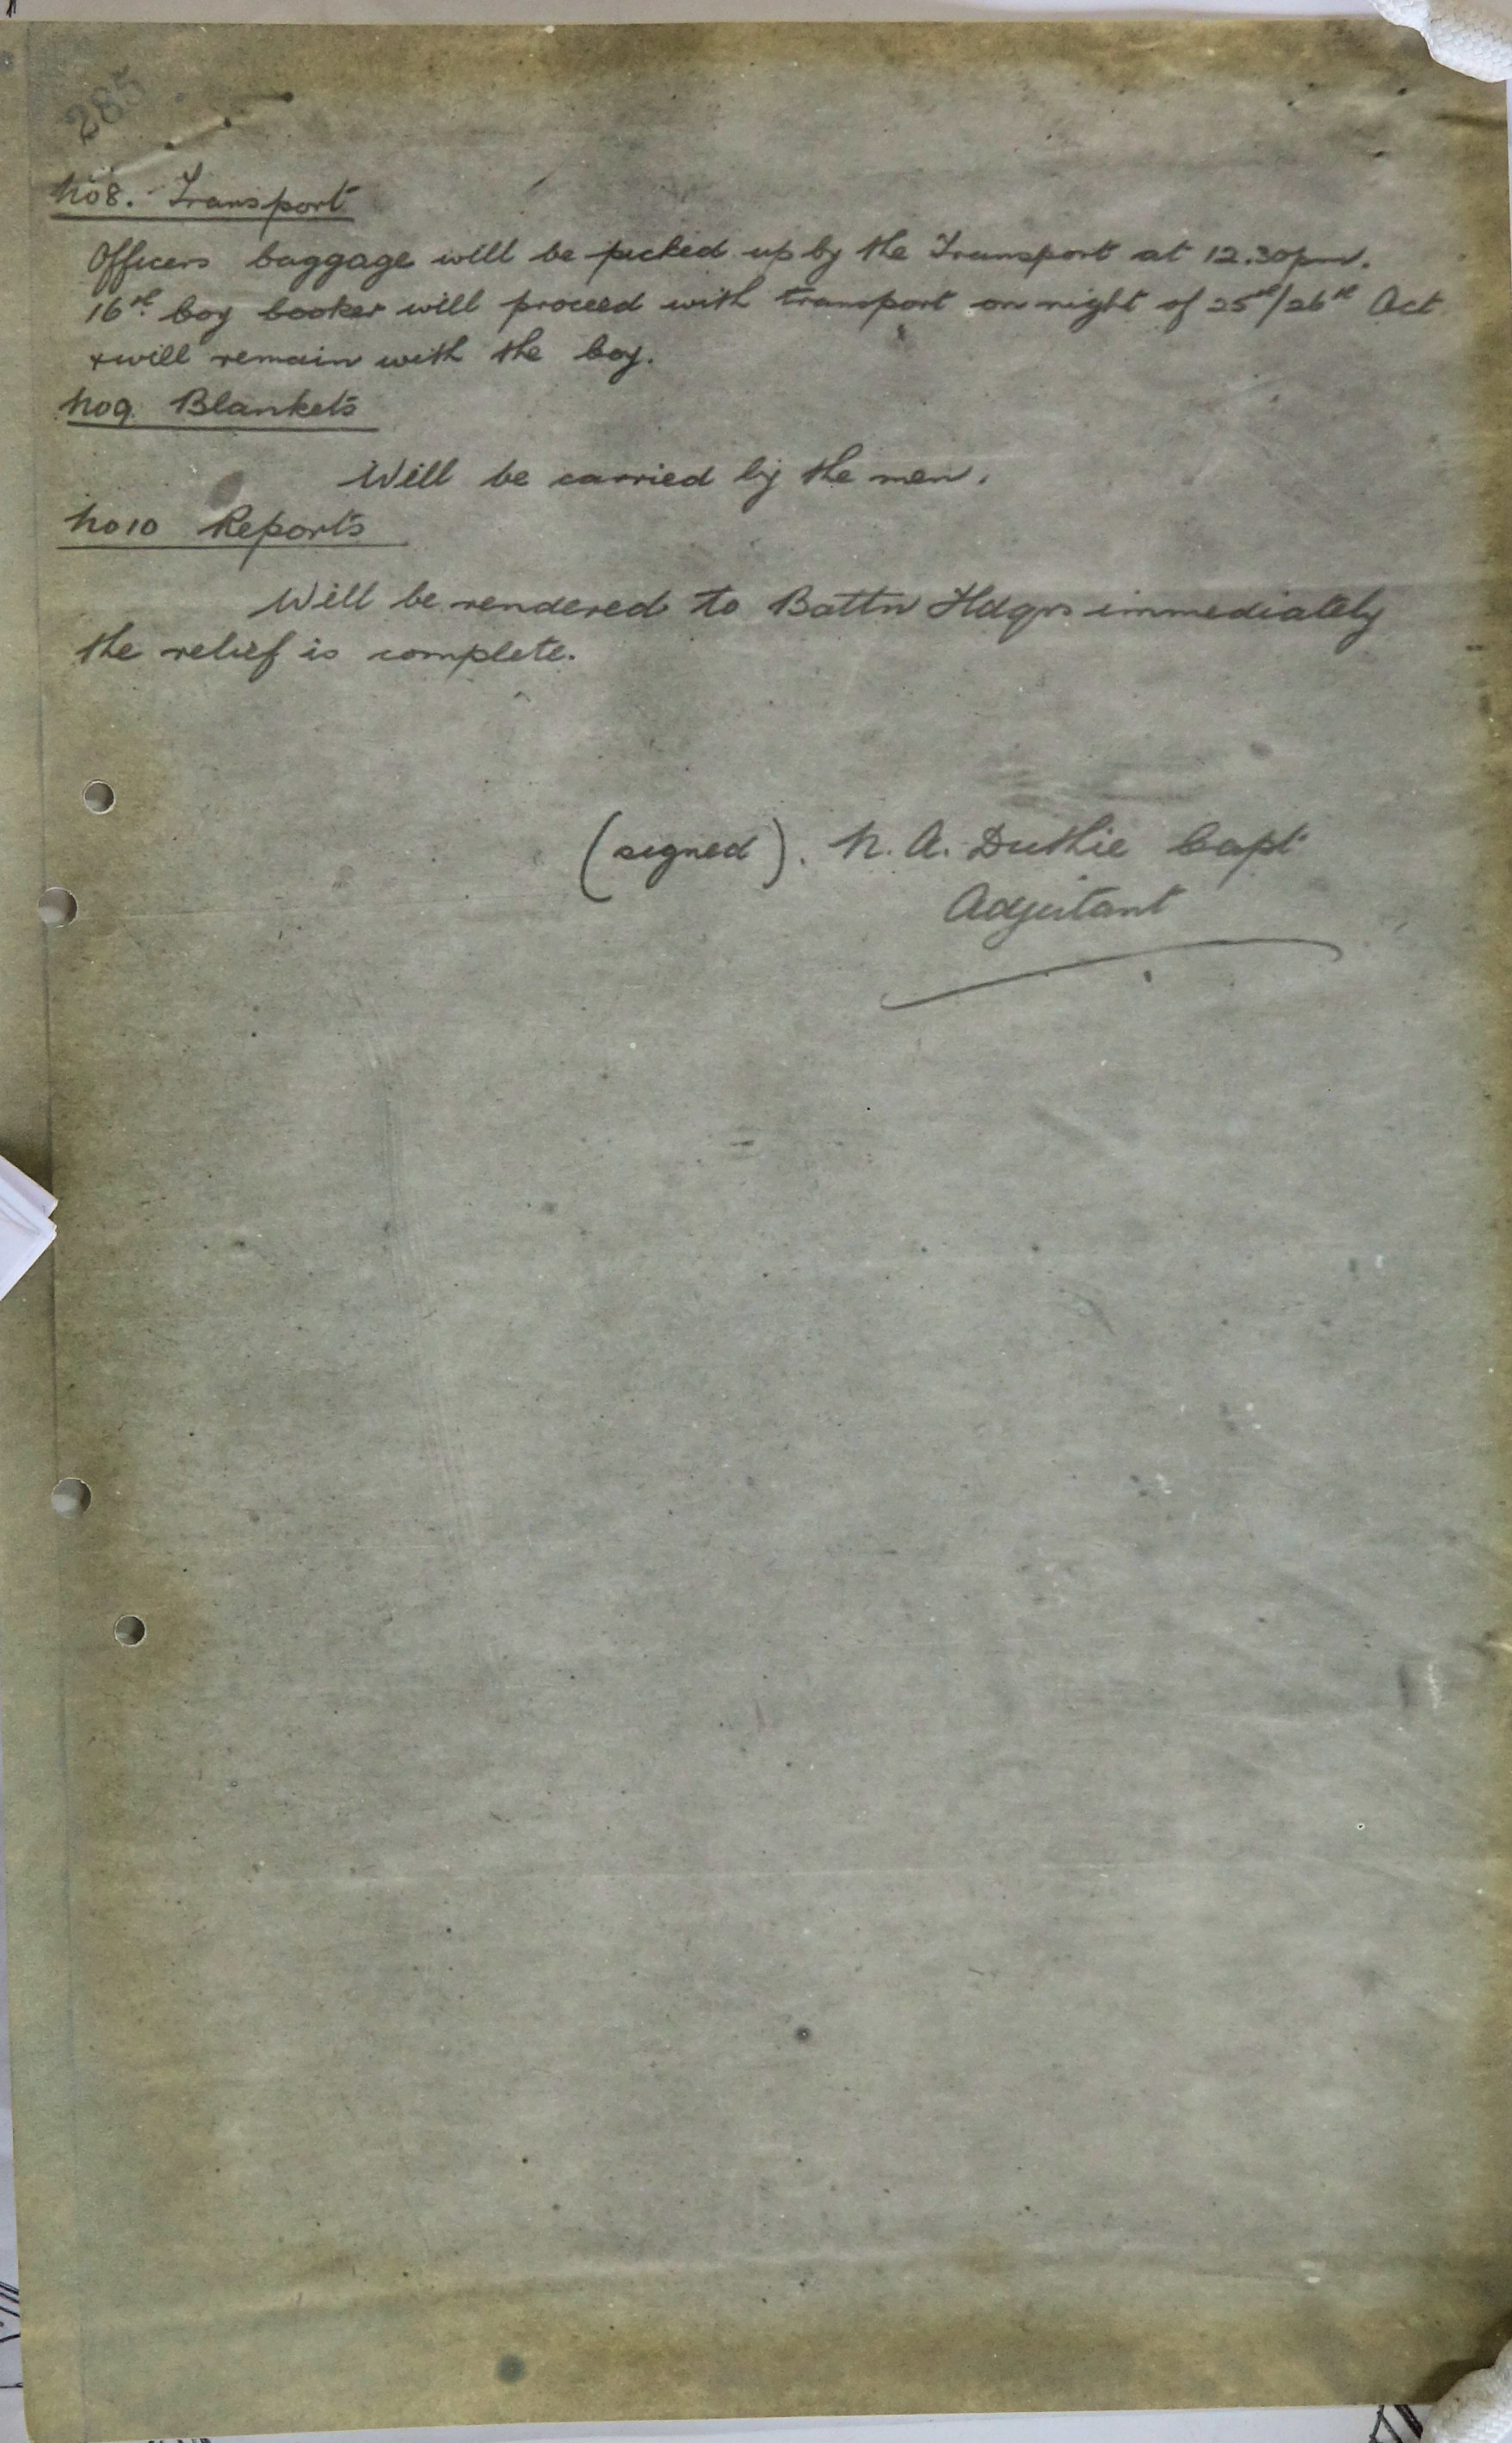 285
No 8. Transport
Officers baggage will be picked up by the Transport at 12.30pm.
16th Coy Cooker will proceed with transport on night of 25th/26th Oct
& will remain with the Coy.
No 9 Blankets
Will be carried by the men.
No 10 Reports
Will be rendered to Battn Hdqrs immediately
the relief is complete.
(signed). N. A. Duthie Capt
Adjutant